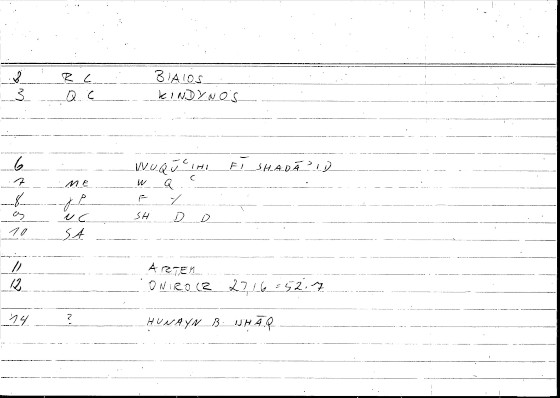 2 R C BIAIOS
3 Q C KINDYNOS
6 WUQŪᶜIHI FĪ SHADĀʾID
7 ME W Q ᶜ
8 F Y
9 NC SH D D
10 SA
11 ARTEM
12 ONIROCR 27,16 = 52.7
14 ? HUNAYN B ISHĀQ